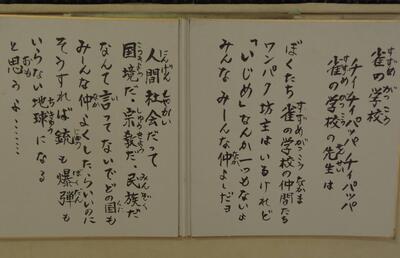 雀の学校
チイチイパッパ チイパッパ
雀の学校の先生は
ぼくたち雀の学校の仲間たち
ワンパク坊主はいるけれど
「いじめ」なんか一つもないよ
みんなみんな仲よしだヨ
人間社会だって
国境だ、宗教だ、民族だ
なんて言ってないでどの国も
みーんな仲よくしたらいいのに
そうすれば銃も爆弾も
いらない地球になる
と思うよ……